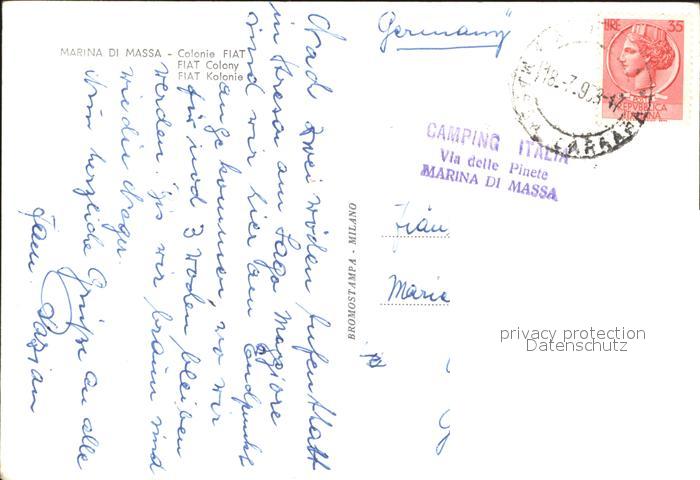 MARINA DI MASSA - Colonie FIAT
FIAT Colony
FIAT Kolonie
Nach zwei woden Aufenthalt
in Stresa am Lago Maggiore
sind wir hier am Endpunkt
angekommen, wo wir
für noch 3 Woden bleiben
werden. Bis wir braun sind
wie die Neger.
Ihm herzliche Grüße an alle
Fam.
BROMOSTAMPA - MILANO
Germany
LIRE 35
REPVBBLICA
ITALIANA
18.7.9
CARRARA
CAMPING ITALIA
Via delle Pinete
MARINA DI MASSA
Marie
privacy protection
Datenschutz